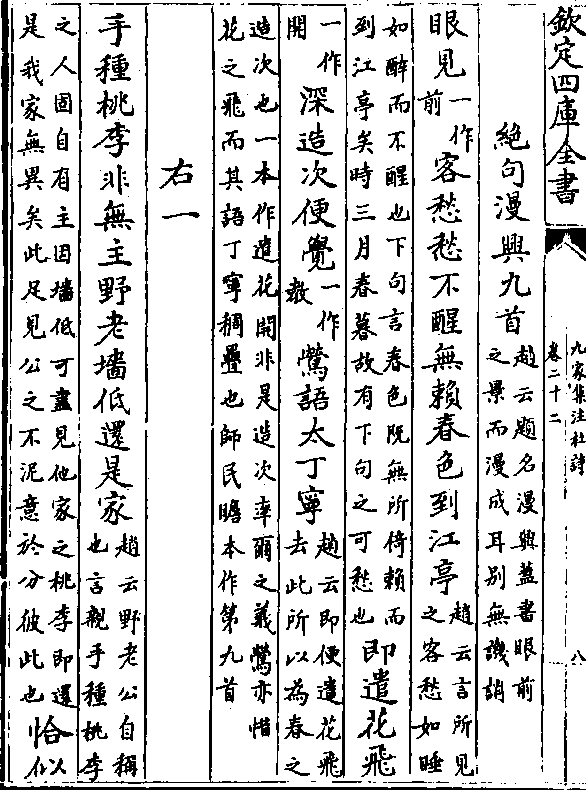 欽定四庫全書
九家集注杜詩
卷二十二
八
絶句漫興九首
趙云題名漫興葢書眼前
之景而漫成耳别無譏誚
眼見
一作
前
客愁愁不醒無賴春色到江亭
趙云言所見
之客愁如睡
如醉而不醒也下句言春色既無所倚賴而
到江亭矣時三月春暮故有下句之可愁也
即遣花飛
一作
開
深造次便覺
一作
教
鶯語太丁寧
趙云即便遣花飛
去此所以為春之
造次也一本作遣花開非是造次率爾之義鶯亦惜
花之飛而其語丁寧稠疊也師民瞻本作第九首
右一
手種桃李非無主野老墻低還是家
趙云野老公自稱
也言親手種桃李
之人固自有主因墻低可盡見他家之桃李即還
是我家無異矣此足見公之不泥意於分彼此也
恰似